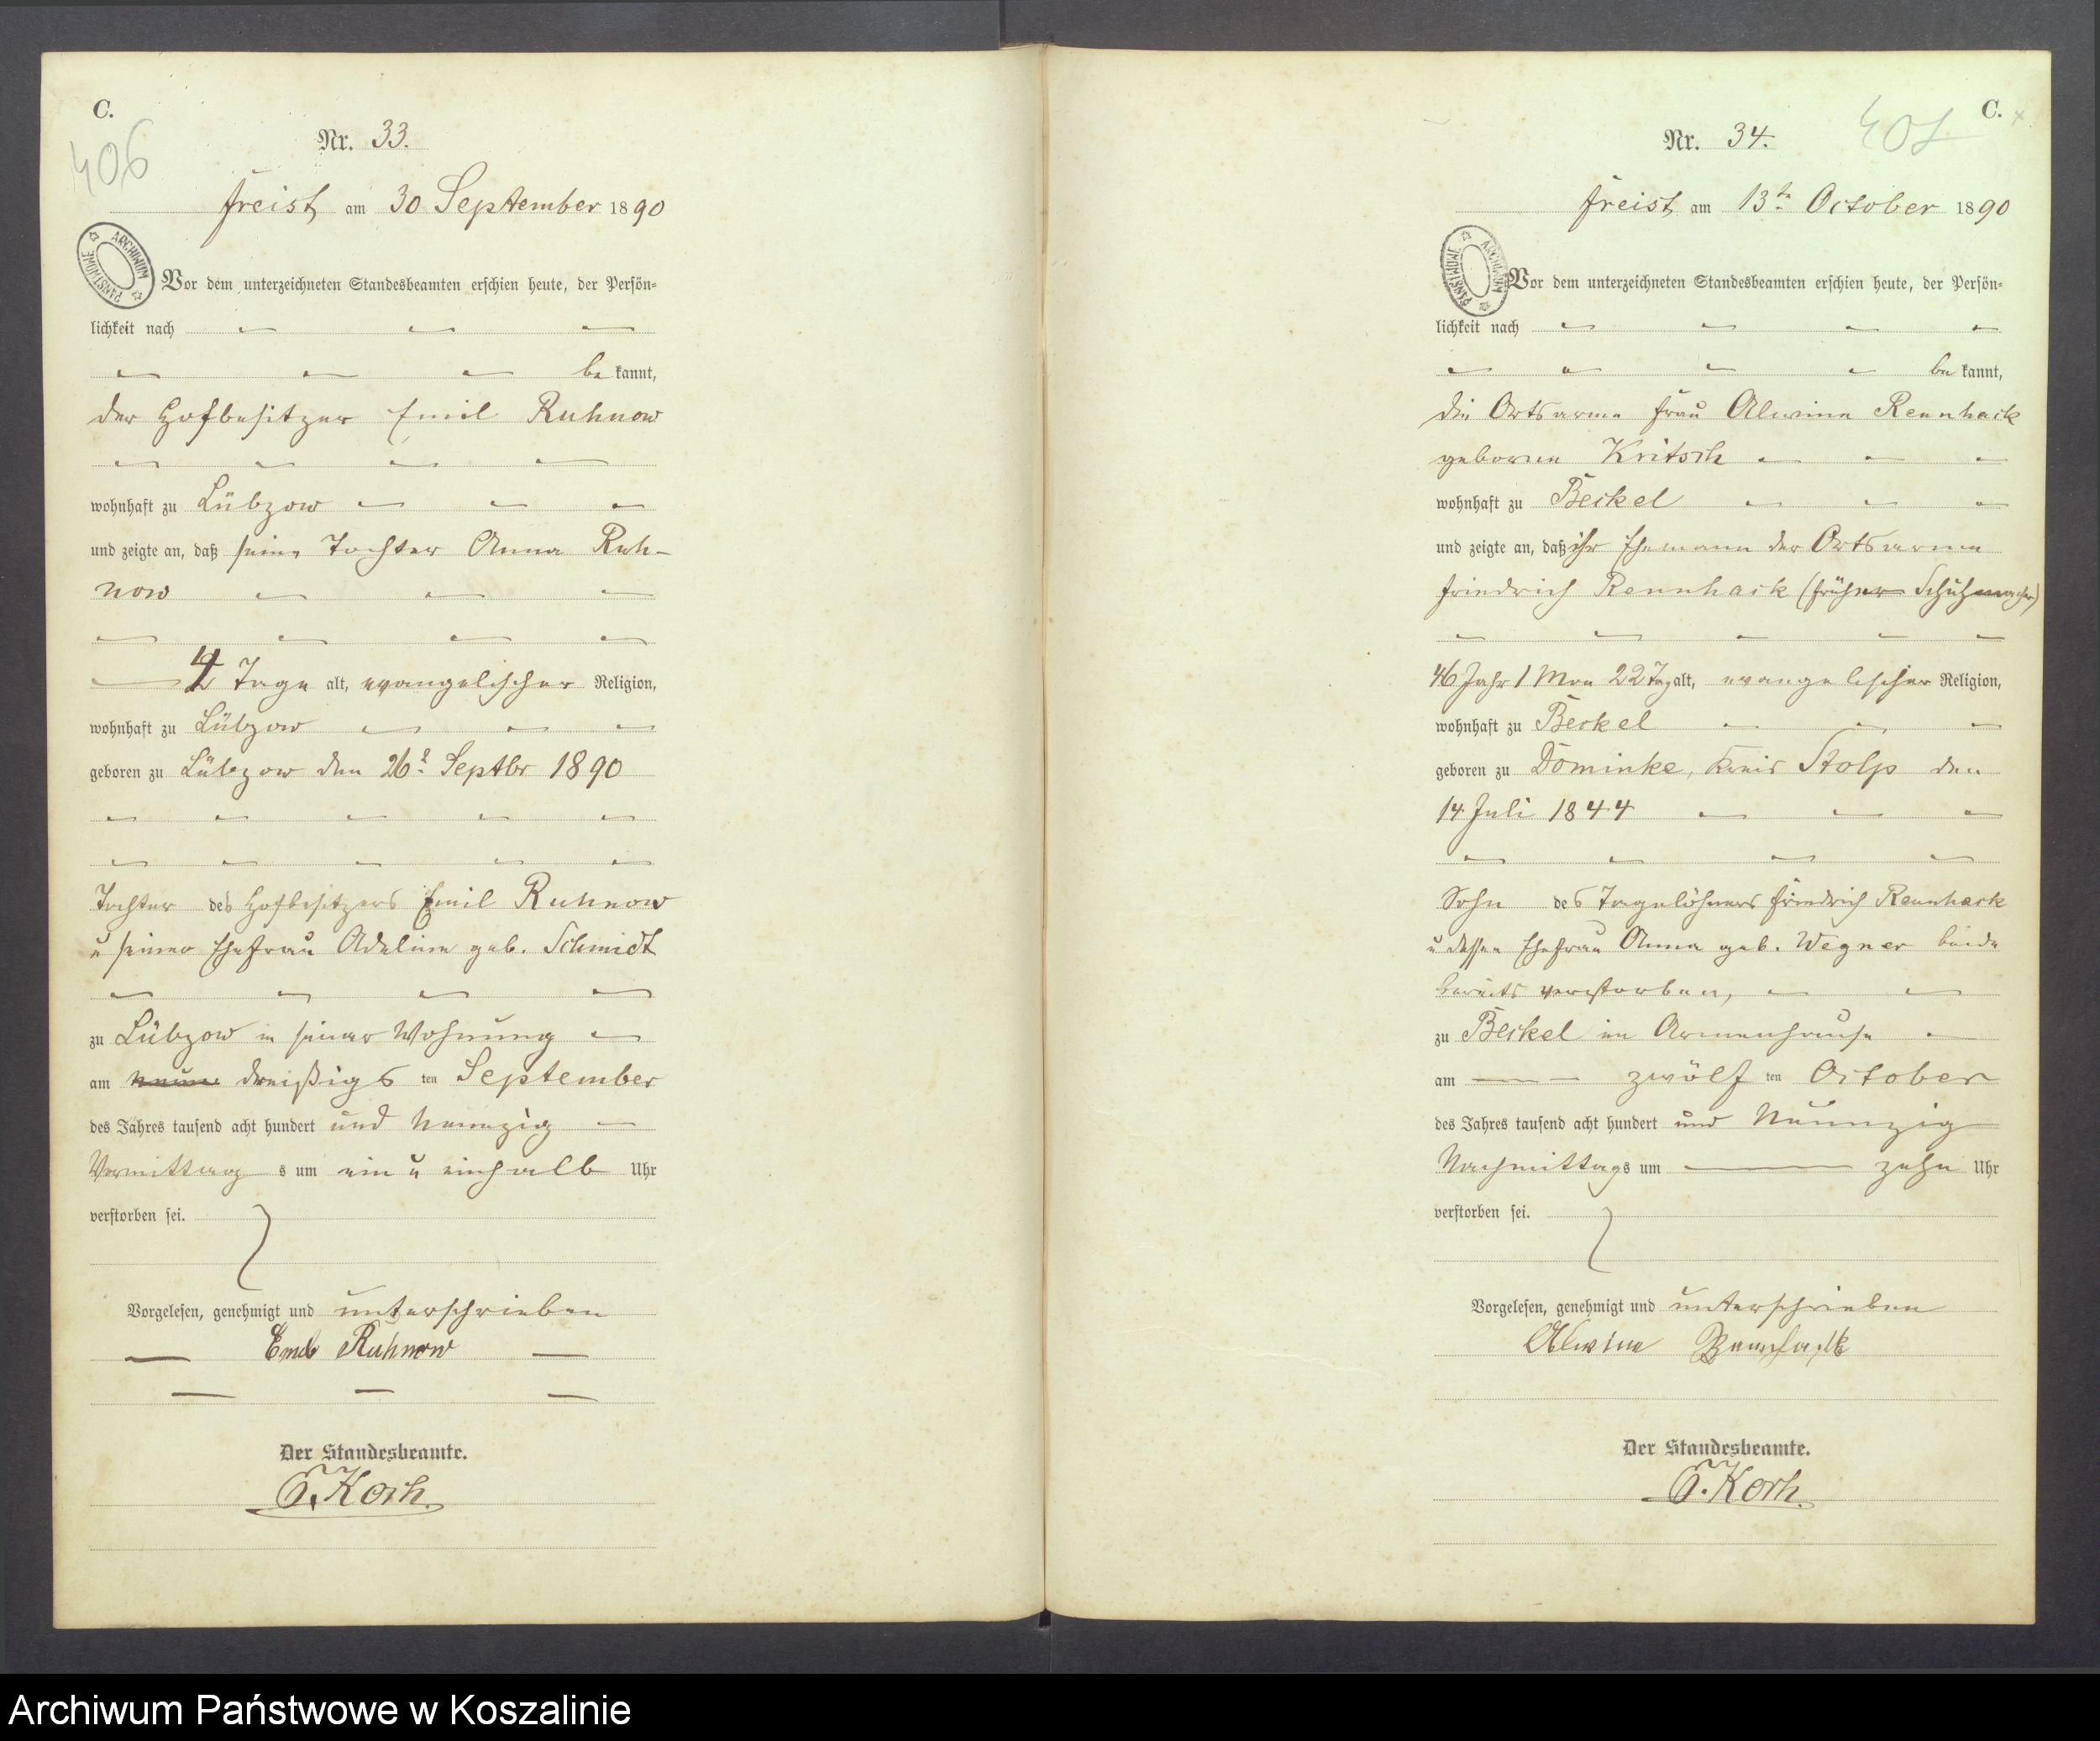 C.
406
Nr. 33.
Freist am 30 September 1890
ARCHIWUM PAŃSTWOWE
Vor dem unterzeichneten Standesbeamten erschien heute, der Persön=
lichkeit nach
be kannt,
der Hofbesitzer Emil Ruhnow
wohnhaft zu Lübzow
und zeigte an, daß seine Tochter Anna Ruh-
now
4 Tage alt, evangelischer Religion,
wohnhaft zu Lübzow
geboren zu Lübzow den 26t Septbr 1890
Tochter des Hofbesitzers Emil Ruhnow
u seiner Ehefrau Adeline geb. Schmidt
zu Lübzow in seiner Wohnung
am dreißigs ten September
des Jahres tausend acht hundert und neunzig
Vormittag s um ein u einhalb Uhr
verstorben sei.
Vorgelesen, genehmigt und unterschrieben
Emil Ruhnow
Der Standesbeamte.
E. Koch.
C.
Nr. 34.
Freist am 13tn October 1890
ARCHIWUM PAŃSTWOWE
Vor dem unterzeichneten Standesbeamten erschien heute, der Persön=
lichkeit nach
be kannt,
die Ortsarme Frau Alwine Rennhack
geborene Kritsch
wohnhaft zu Beckel
und zeigte an, daß ihr Ehemann der Ortsarme
Friedrich Rennhack (früher Schuhmacher)
46 Jahr 1 Mon 22 Tag alt, evangelischer Religion,
wohnhaft zu Beckel
geboren zu Dominke, Kreis Stolp den
14 Juli 1844
Sohn des Tagelöhners Friedrich Rennhack
u dessen Ehefrau Anna geb. Wegner beide
bereits verstorben,
zu Beckel im Armenhause
am zwölf ten October
des Jahres tausend acht hundert und Neunzig
Nachmittags um zehn Uhr
verstorben sei.
Vorgelesen, genehmigt und unterschrieben
Alwine Rennhack
Der Standesbeamte.
E. Koch.
Archiwum Państwowe w Koszalinie